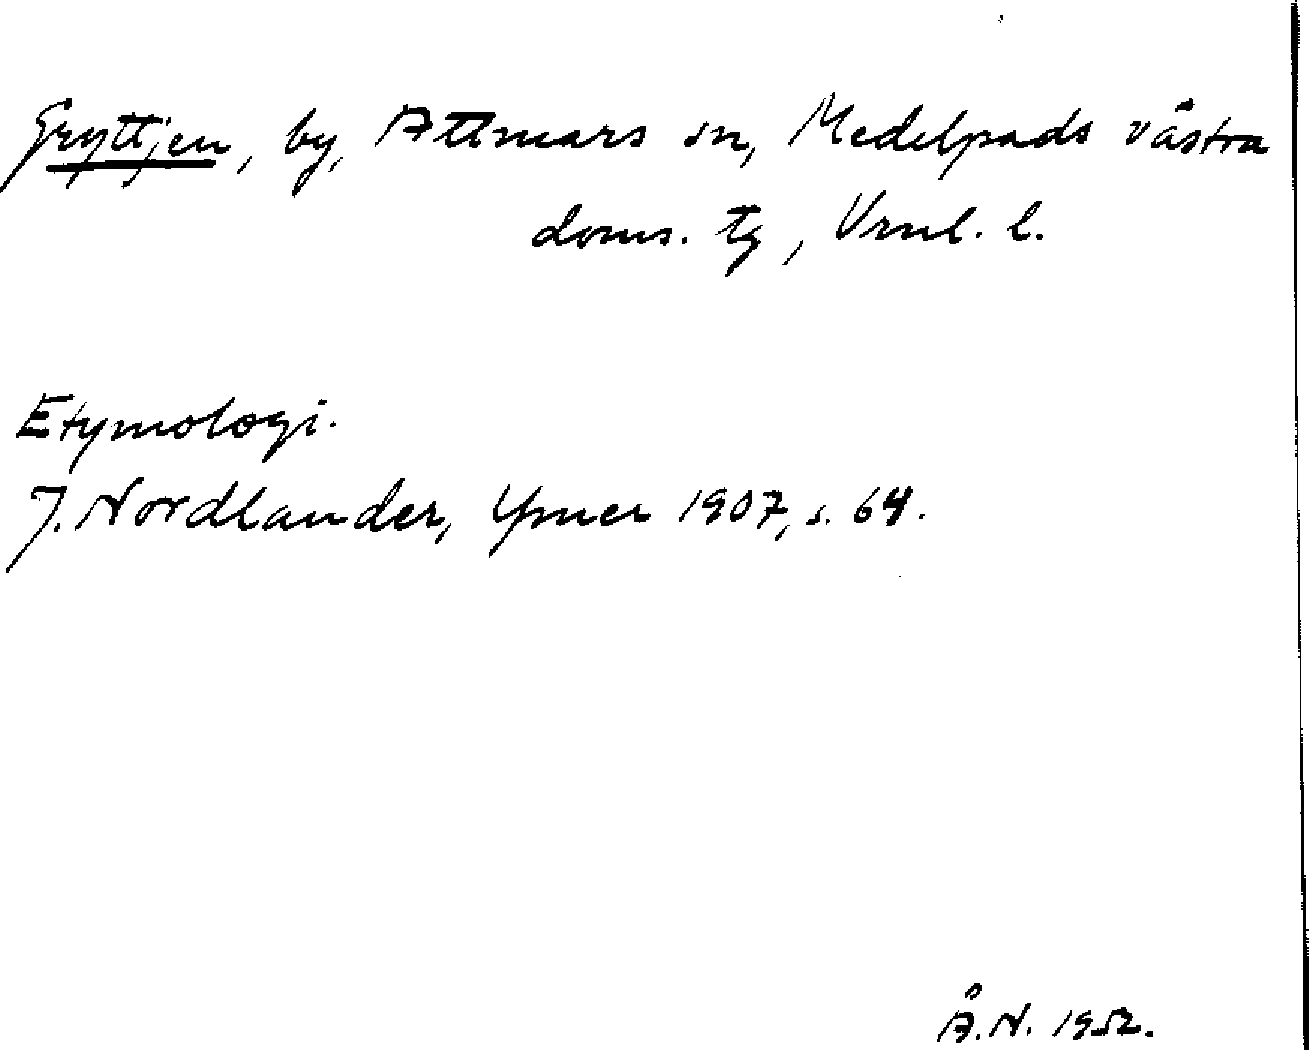 Gryttjen, by, Attmars sn, Medelpads västra
doms. tg, Vrnl. l.
Etymologi.
J. Nordlander, Ymer 1907, s. 64.
Å.N. 1952.